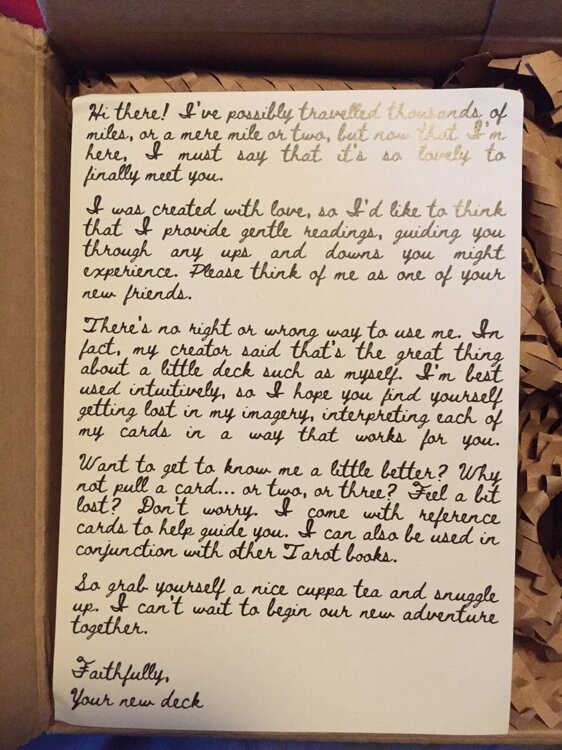 Hi there! I've possibly travelled thousands of
miles, or a mere mile or two, but now that I'm
here, I must say that it's so lovely to
finally meet you.
I was created with love, so I'd like to think
that I provide gentle readings, guiding you
through any ups and downs you might
experience. Please think of me as one of your
new friends.
There's no right or wrong way to use me. In
fact, my creator said that's the great thing
about a little deck such as myself. I'm best
used intuitively, so I hope you find yourself
getting lost in my imagery, interpreting each of
my cards in a way that works for you.
Want to get to know me a little better? Why
not pull a card... or two, or three? Feel a bit
lost? Don't worry. I come with reference
cards to help guide you. I can also be used in
conjunction with other Tarot books.
So grab yourself a nice cuppa tea and snuggle
up. I can't wait to begin our new adventure
together.
Faithfully,
Your new deck